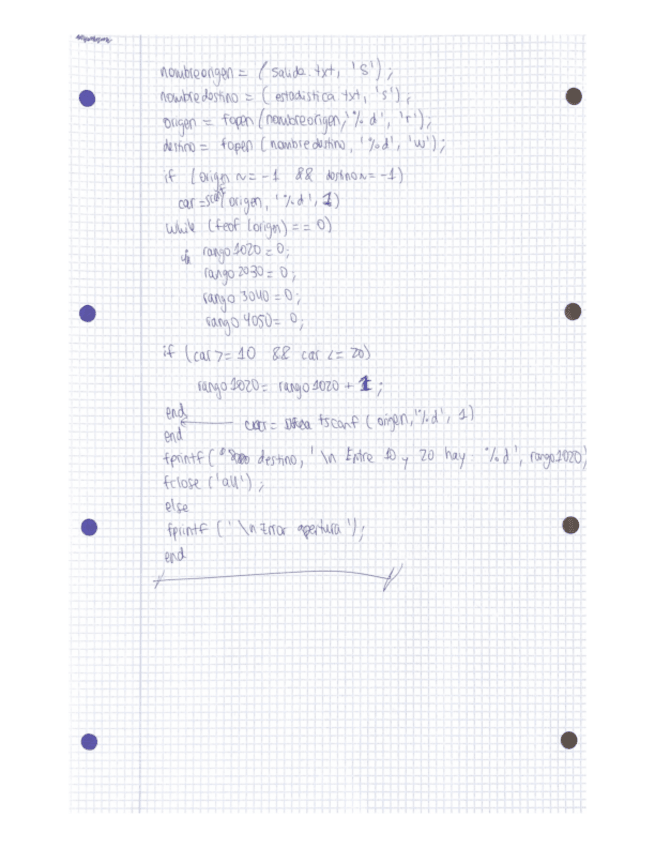 nombreorigen = ( salida.txt, 's' );
nombredestino = ( estadistica.txt, 's' );
origen = fopen (nombreorigen, '%d', 'r');
destino = fopen (nombredestino, '%d', 'w');
if (origen ~= -1 && destino ~= -1)
car = (origen, '%d', 1)
while (feof (origen) == 0)
rango1020 = 0;
rango2030 = 0;
rango3040 = 0;
rango4050 = 0;
if (car >= 10 && car <= 20)
rango1020 = rango1020 + 1;
end
car = fscanf (origen, '%d', 1)
end
fprintf ( destino, ' \n Entre 10 y 20 hay: %d', rango1020)
fclose ('all');
else
fprintf (' \n Error apertura ');
end